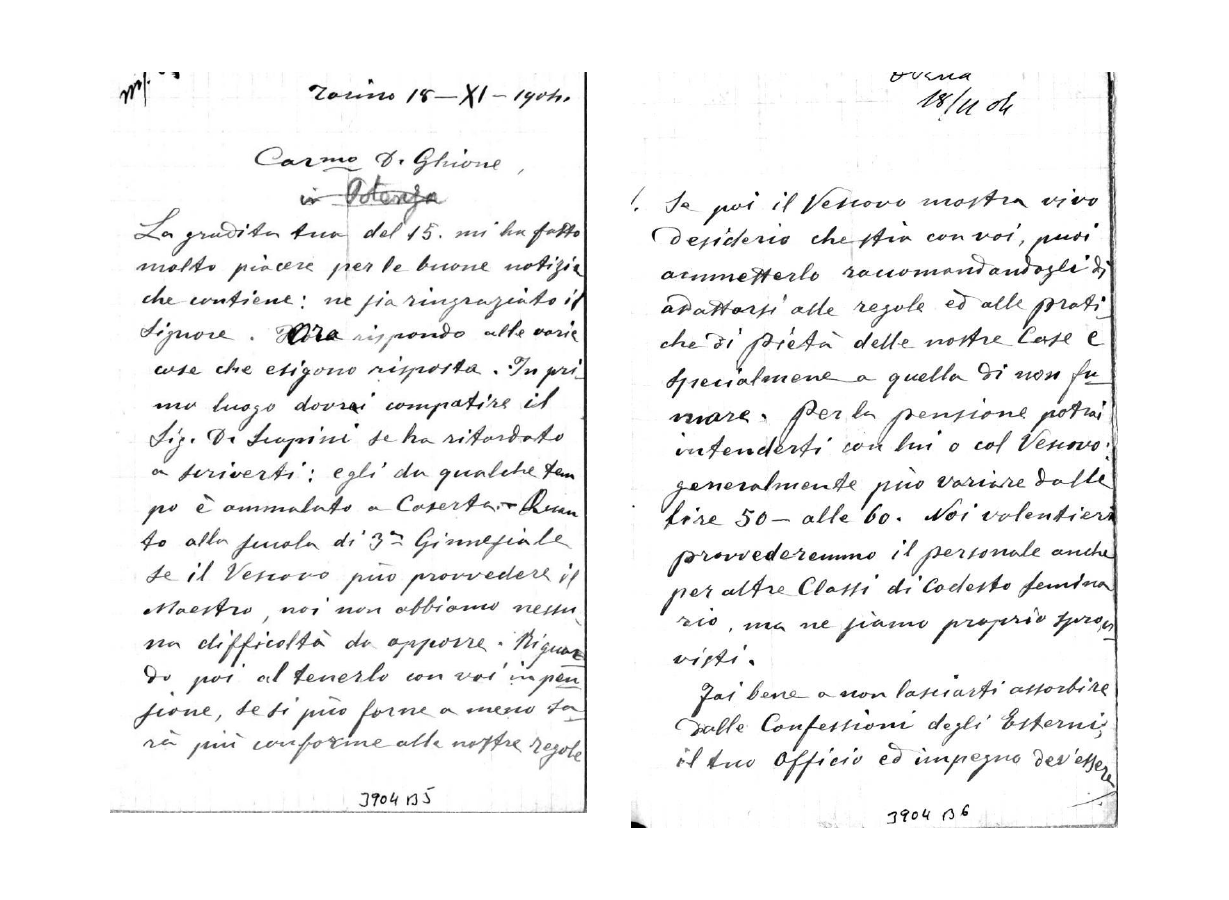 Torino 18 - XI - 904.
Carmo D. Ghione,
in Potenza
La gradita tua del 15. mi ha fatto
molto piacere per le buone notizie
che contiene: ne sia ringraziato il
Signore. Ora rispondo alle varie
cose che esigono risposta. In pri-
mo luogo dovrai compatire il
Sig. D. Scapini se ha ritardato
a scriverti: egli da qualche tem
po è ammalato a Caserta. - Quan
to alla scuola di 3ª Ginnesiale
se il Vescovo può provvedere il
Maestro, noi non abbiamo nessu
na difficoltà da opporre. Riguar
do poi al tenerlo con voi in pen
sione, se si può farne a meno sa-
rà più conforme alle nostre regole
3904 B5
18/11 04
Se poi il Vescovo mostra vivo
desiderio che stia con voi, puoi
ammetterlo raccomandandogli di
adattarsi alle regole ed alle prati-
che di pietà delle nostre Case e
specialmene a quella di non fu-
mare. Per la pensione potrai
intenderti con lui o col Vescovo:
generalmente può variare dalle
lire 50 - alle 60. Noi volentieri
provvederemmo il personale anche
per altre Classi di Codesto Semina
rio, ma ne siamo proprio sprov
visti.
Fai bene a non lasciarti assorbire
dalle Confessioni degli Esterni;
il tuo Officio ed impegno dev'essere
3904 B6